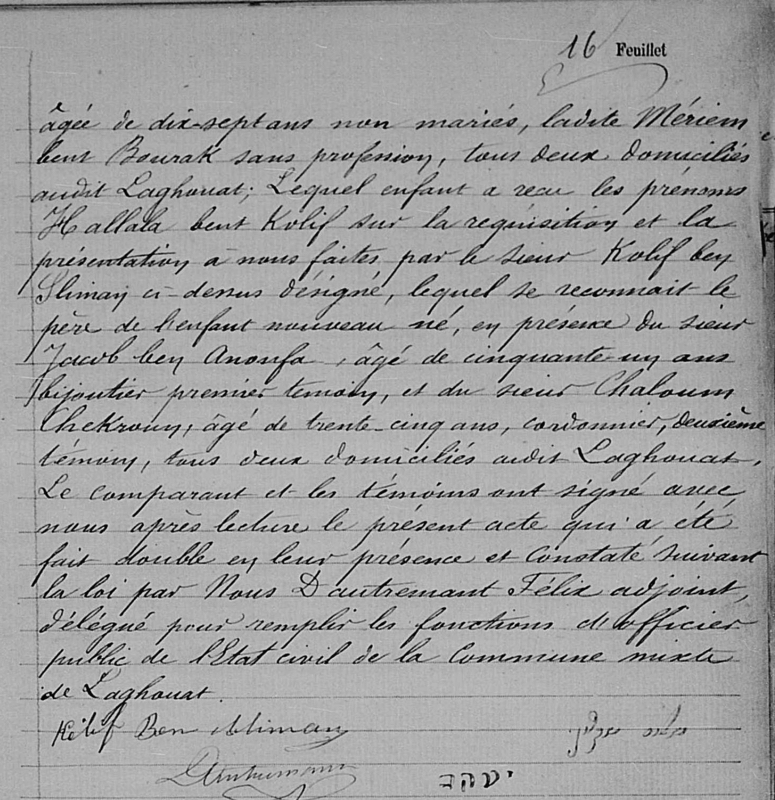 16 Feuillet
âgée de dix-sept ans non mariés, ladite Mériem
bent Bourak sans profession, tous deux domiciliés
audit Laghouat; Lequel enfant a recu les prénoms
Hallala bent Kolif sur la requisition et la
présentation à nous faites par le sieur Kolif ben
Sliman ci-dessus désigné, lequel se reconnait le
père de l'enfant nouveau né, en présence du sieur
Jacob ben Anoufa, âgé de cinquante-un ans
bijoutier premier temoin, et du sieur Chaloum
Chekroun, âgé de trente-cinq ans, cordonnier, deuxième
témoin, tous deux domiciliés audit Laghouat.
Le comparant et les témoins ont signé avec
nous après lecture le présent acte qui a été
fait double en leur présence et constaté suivant
la loi par Nous Dautremant Félix adjoint,
délégué pour remplir les fonctions d'officier
public de l'Etat civil de la Commune mixte
de Laghouat.
Kélif Ben Sliman
יעקב